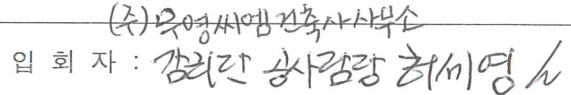 (주)무영씨엠건축사사무소
입 회 자 : 감리단 공사감랑 허세영